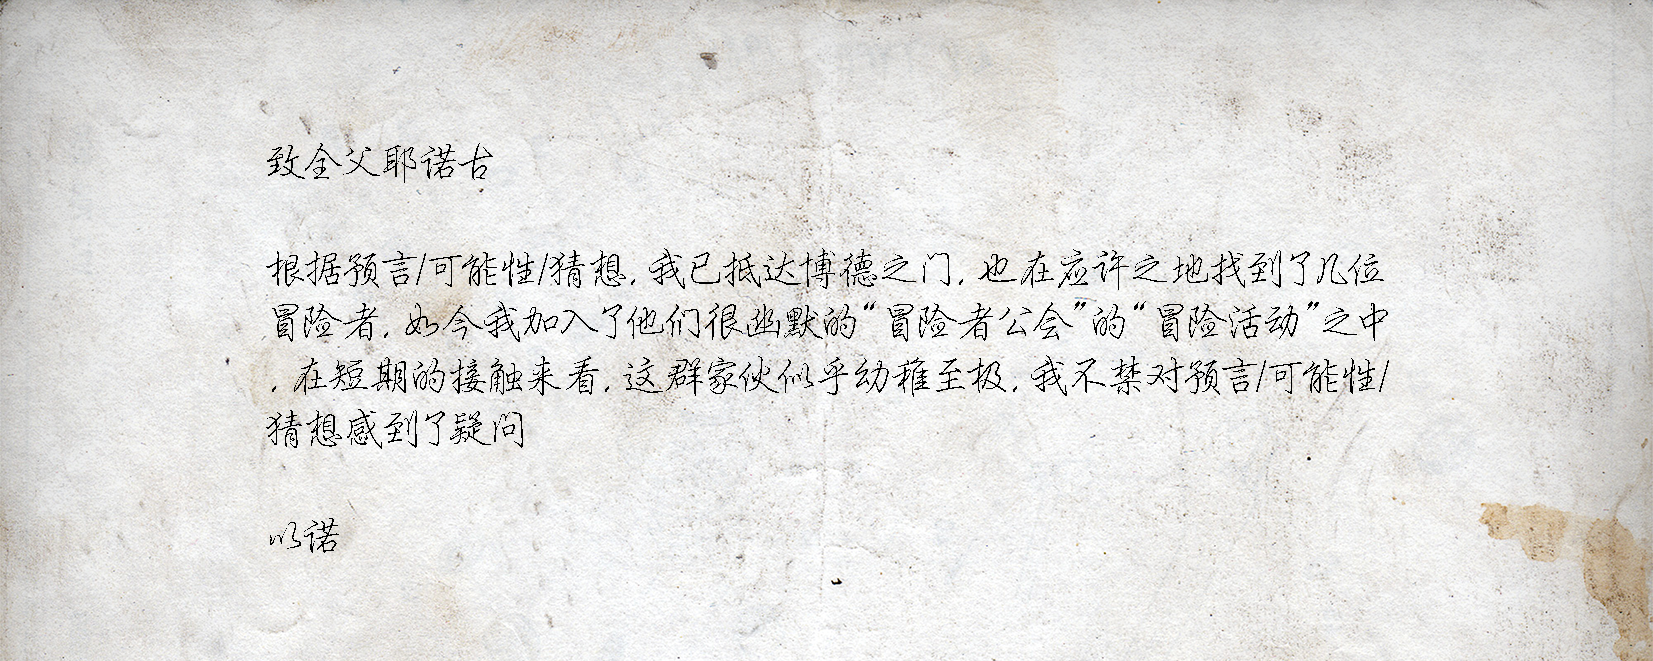 致全父耶诺古
根据预言/可能性/猜想，我已抵达博德之门，也在应许之地找到了几位
冒险者，如今我加入了他们很幽默的“冒险者公会”的“冒险活动”之中
，在短期的接触来看，这群家伙似乎幼稚至极，我不禁对预言/可能性/
猜想感到了疑问
以诺